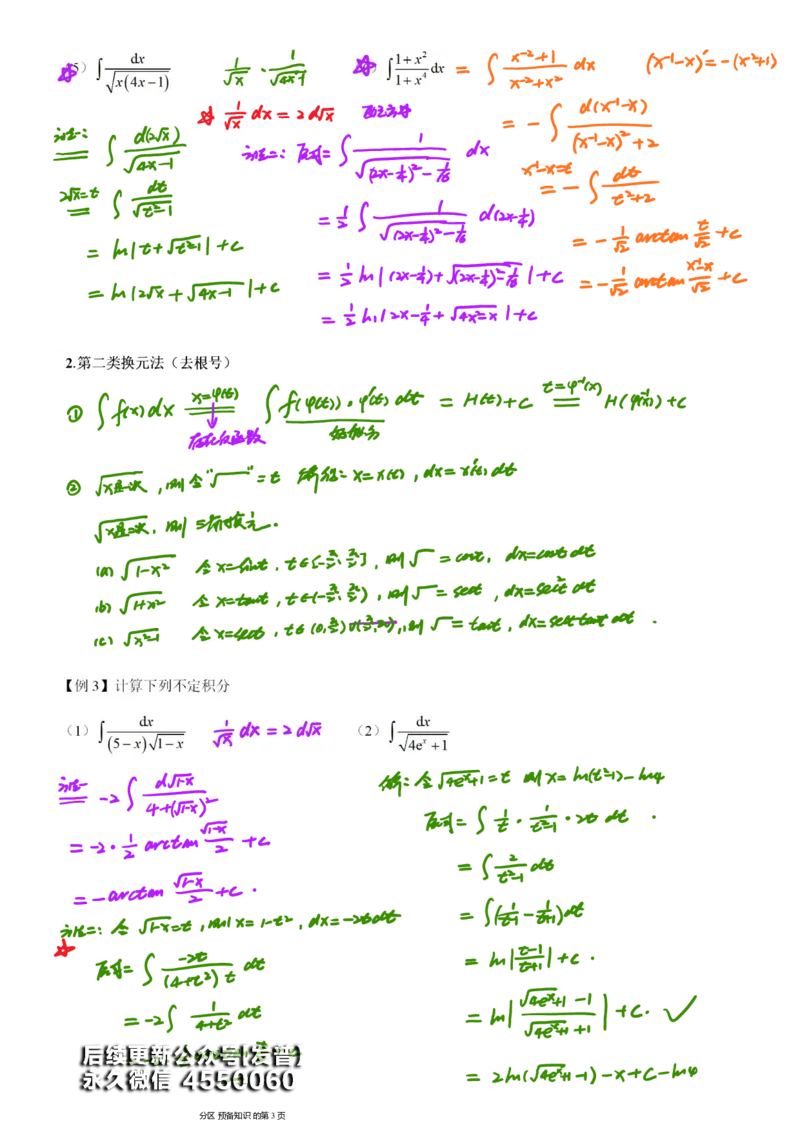 5) ∫ dx / √(x(4x−1))   1/√x · 1/√(4x−1)
☆ 1/√x dx = 2 d√x
方法一: ∫ d(2√x) / √(4x−1)
2√x=t ∫ dt / √(t²−1)
= ln|t+√(t²−1)|+c
= ln|2√x+√(4x−1)|+c
方法二: 原式= ∫ 1 / √((2x−1/4)²−1/16) dx
= 1/2 ∫ 1 / √((2x−1/4)²−1/16) d(2x−1/4)
= 1/2 ln|(2x−1/4)+√((2x−1/4)²−1/16)|+c
= 1/2 ln|2x−1/4+√(4x²−x)|+c
∫ (1+x²)/(1+x⁴) dx = ∫ (x⁻²+1)/(x⁻²+x²) dx   (x⁻¹−x)′=−(x⁻²+1)
= −∫ d(x⁻¹−x) / ((x⁻¹−x)²+2)
x⁻¹−x=t = −∫ dt/(t²+2)
= −1/√2 arctan t/√2 +c
= −1/√2 arctan (x⁻¹−x)/√2 +c
2.第二类换元法(去根号)
① ∫f(x)dx x=φ(t) ∫f(φ(t))·φ′(t)dt = H(t)+c t=φ⁻¹(x) H(φ⁻¹(x))+c
存在反函数   好积分
② √x是一次,则令"√"=t 解得: x=x(t), dx=x′(t)dt
√x是二次,则三角换元.
(a) √(1−x²) 令x=sint, t∈[−π/2, π/2], 则√=cost, dx=costdt
(b) √(1+x²) 令x=tant, t∈(−π/2, π/2), 则√=sect, dx=sec²t dt
(c) √(x²−1) 令x=sect, t∈(0, π/2)∪(π/2, π), 则√=tant, dx=sect tant dt.
【例 3】计算下列不定积分
(1) ∫ dx / ((5−x)√(1−x))   1/√x dx = 2d√x
方法一 −2∫ d√(1−x) / (4+(√(1−x))²)
= −2·1/2 arctan √(1−x)/2 +c
= −arctan √(1−x)/2 +c.
方法二: 令√(1−x)=t, 则x=1−t², dx=−2tdt
☆ 原式= ∫ −2t / ((4+t²)t) dt
= −2∫ 1/(4+t²) dt
(2) ∫ dx / √(4eˣ+1)
解: 令√(4eˣ+1)=t 则x=ln(t²−1)−ln4
原式= ∫ 1/t · 1/(t²−1) · 2t dt.
= ∫ 2/(t²−1) dt
= ∫(1/(t−1) − 1/(t+1))dt
= ln|(t−1)/(t+1)|+c.
= ln|(√(4eˣ+1) −1)/(√(4eˣ+1) +1)|+c. ✓
= 2ln(√(4eˣ+1)−1)−x+c−ln4
后续更新公众号[发譜]
永久微信 4550060
分区 预备知识 的第 3 页